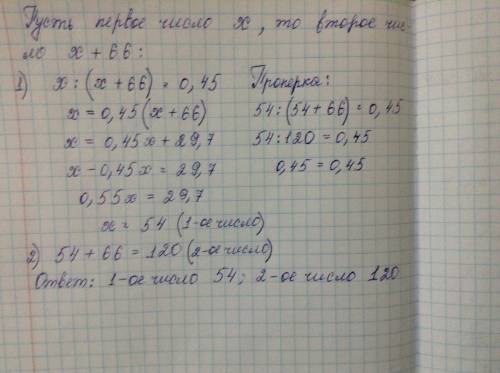 Пусть первое число x, то второе чис-
ло x + 66:
1) x : (x + 66) = 0,45
x = 0,45 (x + 66)
x = 0,45x + 29,7
x - 0,45x = 29,7
0,55x = 29,7
x = 54 (1-ое число)
2) 54 + 66 = 120 (2-ое число)
Проверка:
54 : (54 + 66) = 0,45
54 : 120 = 0,45
0,45 = 0,45
Ответ: 1-ое число 54; 2-ое число 120